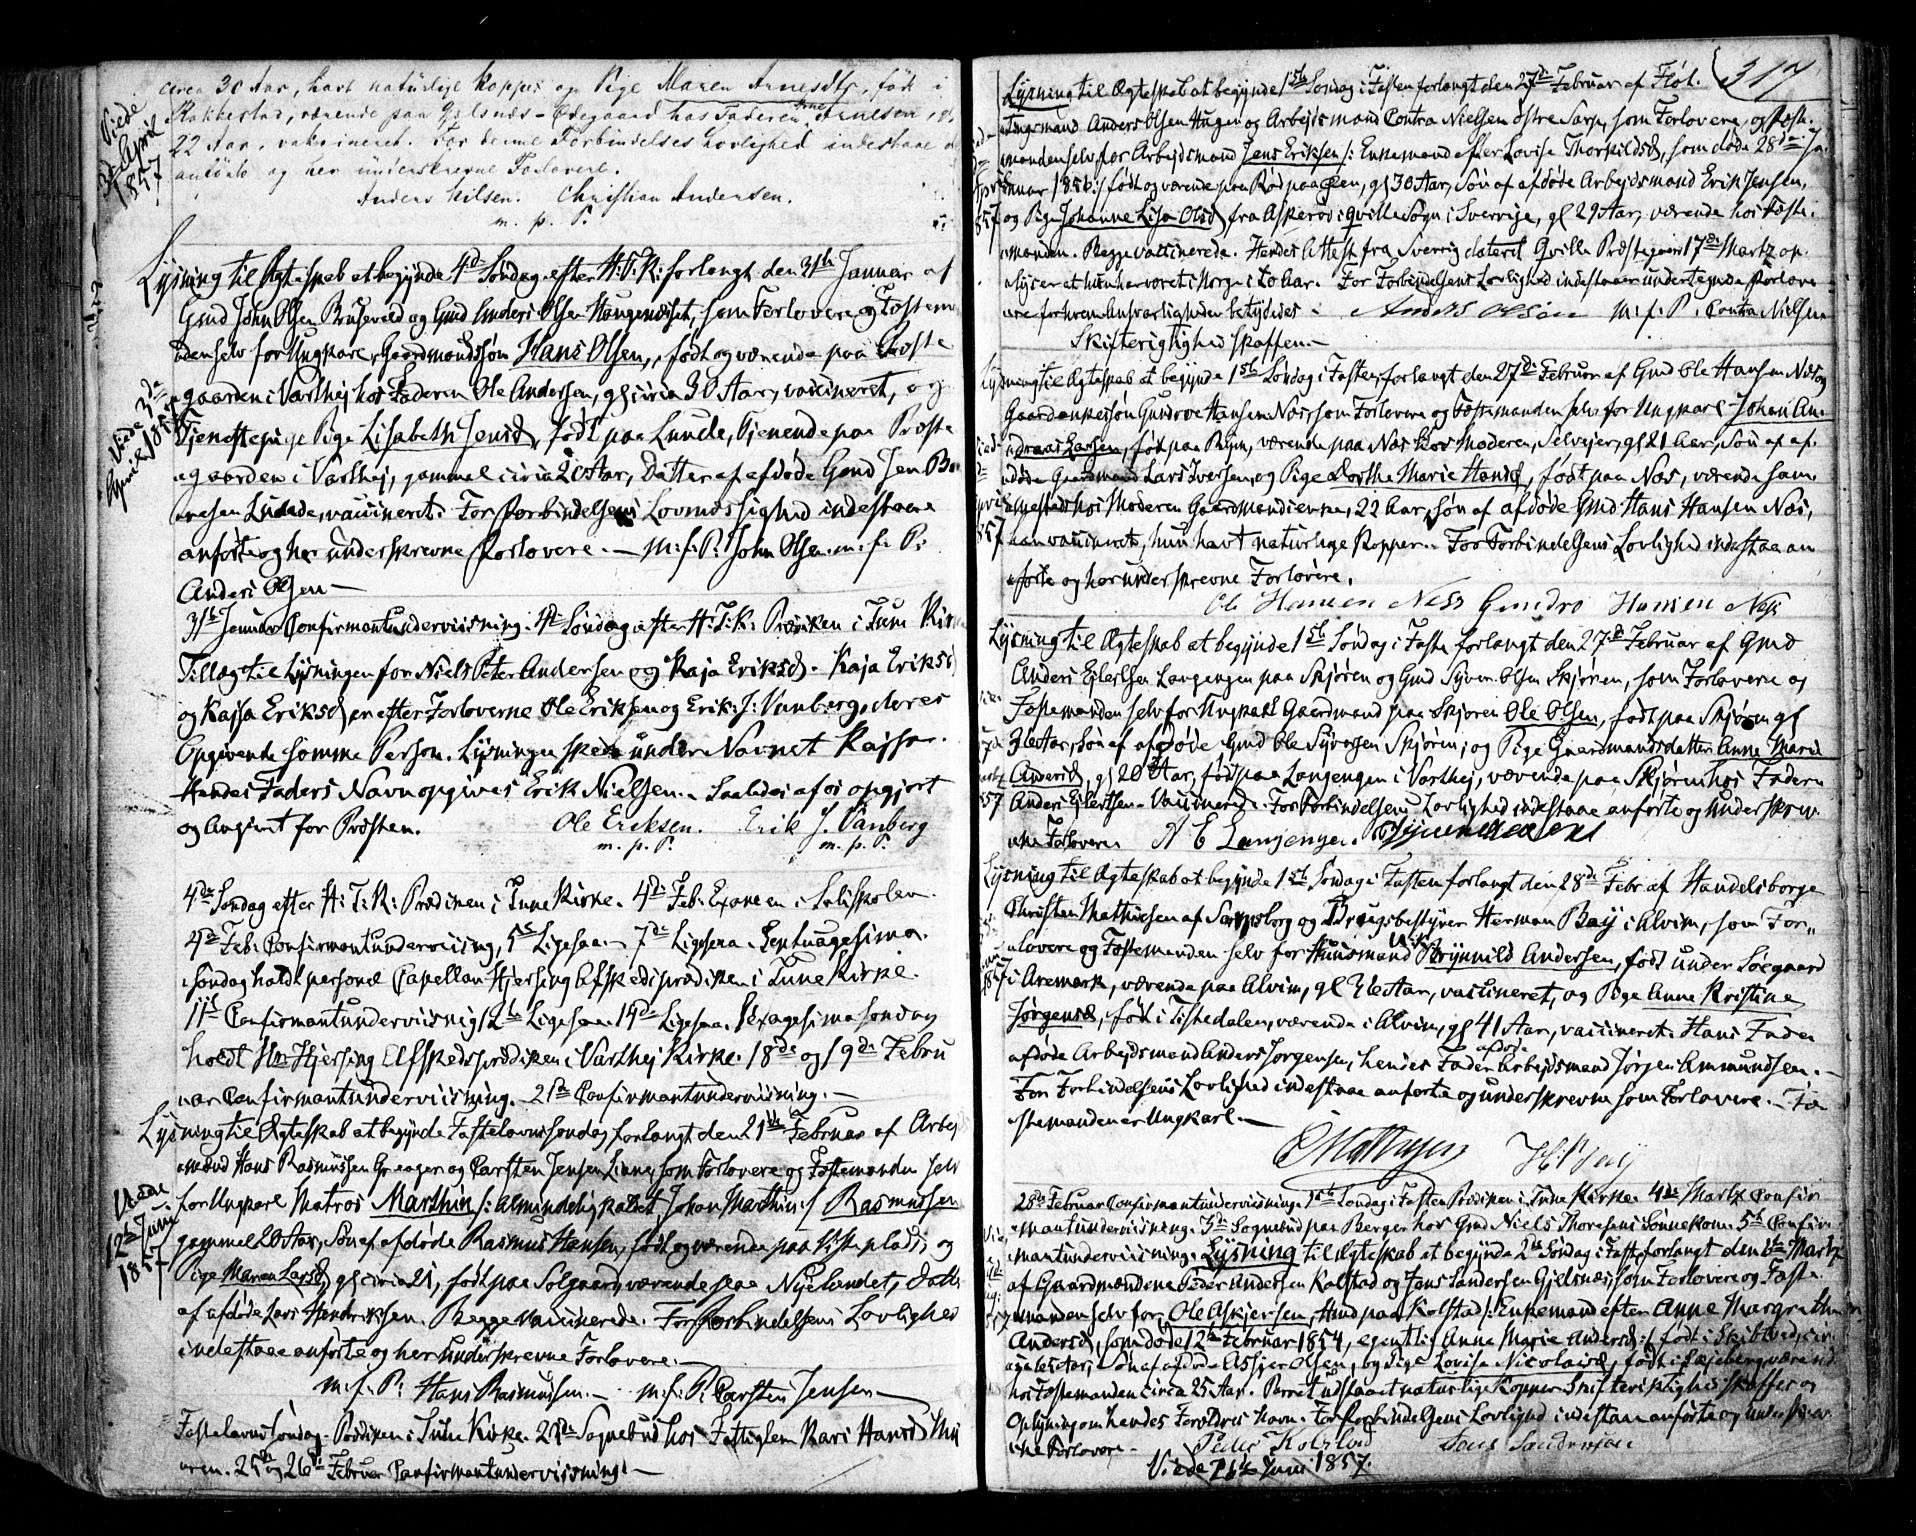 circa 30 Aar, havt naturlige Kopper og Pige Maren Arnesdtr, født i
Rakkestad, værende paa Gjelsnæs-Ødegaard hos Faderen Arne Arnesen,
22 Aar, vakcineret. For denne Forbindelses Lovlighed indestaae
anførte og her underskrevne Forlovere.
Anders Nilsen. Christian Andersen.
m. p. P.
Viede
April
1857
Lysning til Ægteskab at begynde 4de Søndag efter H: T: K: forlangt den 31te Januar af
Gmd John Olsen og Gmd Anders Olsen Haugenæsset, som Forlovere og Festem
anden selv for Ungkarl, Gaardmandssøn Hans Olsen, født og værende paa Præste
gaarden i Varthej hos Faderen Ole Andersen, gl circa 30 Aar, vaccineret, og
Tjenestepige Pige Lisabeth Jensd, født paa Lunde, Tjenende paa Præste
gaarden i Varthej, gammel circa 20 Aar, Datter af afdøde Gmd Jen
Lunde, vaccineret. For Forbindelsens Lovmæssighed indestaae
anførte og her underskrevne Forlovere. — M: f: P: John Olsen. m: f: P:
Anders Olsen —
Viede 3de
April 1857
31te Januar Confirmantunderviisning. 4de Søndag efter H: T: K: Præken i Tune Kirke
Tillæg til Lysningen for Niels Peter Andersen og Kaja Eriksd. Kaja Eriksd
og Kajsa Eriksd er efter Forloverne Ole Eriksen og Erik J. Vanbergs deres
Opgivende samme Person. Lysningen skede under Navnet Kajsa.
Hendes Faders Navn opgives Erik Nielsen. Saaledes af os opgjort
og angivet for Præsten. Ole Eriksen. Erik J. Vanberg
m. p. P. m. p. P.
4de Søndag efter H: T: K: Prædiken i Tune Kirke. 4de Feb: Examen i Solliskolen.
4de Feb: Confirmantunderviisning, 5te Ligesaa. 7de Ligesaa. Septuagesima
søndag holdt personel Capellan Hjersing Afskedsprædiken i Tune Kirke.
11te Confirmantunderviisning 12te Ligesaa. 14de Ligesaa. Sexagesima søndag
holdt Hr Hjersing Afskedsprædiken i Varthej Kirke. 18de og 19de Febru
ar Confirmantunderviisning. 21de Confirmantunderviisning. —
Lysning til Ægteskab at begynde Fastelavnssøndag forlangt den 21de Februar af Arbejd
smænd Hans Rasmussen Greager og Carsten Jensen Liane, som Forlovere og Festemanden selv
for Ungkarl Matros Marthin /: almindelig kaldet Johan Marthin :/ Rasmussen
gammel 20 Aar, Søn af afdøde Rasmus Hansen, født og værende paa Pladsj og
Pige Maren Larsd, gl circa 21, født paa Solgaard, værende paa Nyelandet, Datter
af afdøde Lars Hendriksen. Begge vaccinerede. For Forbindelsens Lovlighed
indestaae anførte og her underskrevne Forlovere. —
m: f: P: Hans Rasmussen. — m: f: P: Carsten Jensen —
Viede
12te Juni
1857
Fastelavnssøndag Prædiken i Tune Kirke. Sognebud hos Fattiglem Kari Hansd
25de og 26de Februar Confirmantunderviisning. —
317
Lysning til Ægteskab at begynde 1ste Søndag i Fasten forlangt den 27de Februar af
Anders Olsen Hugen og Arbejdsmand Contra Nielsen østre Sarp, som Forlovere, og Fæste
manden selv for Arbejdsmand Jens Eriksen /: Enkemand efter Lovise Thorkildsd, som døde 28de Ja
nuar 1856 :/ født og værende paa Rød paa Øen, gl 30 Aar, Søn af afdøde Arbejdsmand Erik Jensen,
og Pige Johanne Lisa Olsd, fra Askerød i Qville Sogn i Sverrige, gl 29 Aar, værende hos Fæste
manden. Begge vaccinerede. Hendes Attest fra Sverrig dateret Qville Præstegaard 17de Martz op
lyser at hun har været i Norge i to Aar. For Forbindelsens Lovlighed indestaaer undertegnede Forlove
re for hvem Ansvarligheden betydedes. Anders Olsen M: f: P. Contra Nielsen
Skifterigtighed skaffes. —
Lysning til Ægteskab at begynde 1ste Søndag i Fasten, forlangt den 27de Februar af Gmd Ole Hansen Næs og
Gaardenkesøn Gundroe Hansen Næs, som Forlovere og Fæstemanden selv for Ungkarl Johan An
dreas Larsen, født paa Ryen, værende paa Næs hos Moderen, Selvejer, gl 21 Aar, Søn af af
døde Gaardmand Lars Iversen, og Pige Dorthe Marie Hansd, født paa Næs, værende sam
mesteds hos Moderen Gaardmandsenke, 22 Aar, Søn af afdøde Gmd Hans Hansen Næs,
han vaccineret, hun havt naturlige Kopper. For Forbindelsens Lovlighed indestaae an
førte og her underskrevne Forlovere.
Ole Hansen Ness Gundro Hansen Ness
Lysning til Ægteskab at begynde 1ste Søndag i Faste forlangt den 27de Februar af Gmd
Anders Ejlertsen Langengen paa Skjøren og Gmd Syver Olsen Skjøren, som Forlovere og
Festemanden selv for Ungkarl Gaardmand paa Skjøren Ole Olsen, født paa Skjøren gl
Aar, Søn af afdøde Gmd Ole Syversen Skjøren, og Pige Gaardmandsdatter Anne Marie
Andersd, gl 20 Aar, født paa Langengen i Varthej, værende paa Skjøren hos Faderen
Anders Ejlertsen. Vaccinerede. For Forbindelsens Lovlighed indestaae anførte og underskrev
ne Forlovere. A E Langengen.
Lysning til Ægteskab at begynde 1ste Søndag i Fasten forlangt den 28de Febr. af Handelsborger
Christian Mathiesen af Sarpsborg og Brugsbestyrer Herman Bay i Alvim, som For
lovere og Festemanden selv for Huusmand Brynnild Andersen, født under Søegaard
i Aremark, værende paa Alvim, gl Aar, vaccineret, og Pige Anne Kristine
Jørgensd, født i Tistedalen, værende i Alvim, gl 41 Aar, vaccineret. Hans Fader
afdøde Arbejdsmand Anders Jørgensen, hendes Fader afdøde Arbejdsmand Jørgen Ammundsen. —
For Forbindelsens Lovlighed indestaae anførte og underskrevne som Forlovere. — Fæ
stemanden er Ungkarl. —
C Mathiesen H. Bay
28de Februar Confirmantunderviisning. 1ste Søndag i Fasten Prædiken i Tune Kirke. 4de Martz Confir
mantunderviisning. Sognebud paa Berger hos Gmd Niels Thoresens Sønnekone. 5te Confir
mantunderviisning. Lysning til Ægteskab at begynde 2den Søndag i Faste, forlangt den Martz
af Gaardmændene Peder Andersen Kolstad og Jens Sandersen Gjelsnæs, som Forlovere og Fæste
manden selv for Ole Askjersen, Hmd paa Kolstad /: Enkemand efter Anne Margrethe
Andersd, som døde 12te Februar 1854, egentlig Anne Marie Andersd :/ født i Skibtved, cir
ca Aar, Søn af afdøde Asbjer Olsen, og Pige Lovise Nicolaisd, født i Skjeberg værend
hos Festemanden circa 25 Aar. Parret udstaaet naturlige Kopper. Skifterigtighed skaffes og
Oplysning om hendes Forældres Navn. For Forbindelsens Lovlighed indestaae anførte og underskrev
ne Forlovere. — Peder Kolstad Jens Sandersen
Viede Juni 1857.